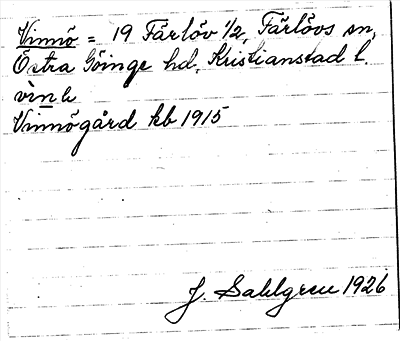 Vinnö = 19 Färlöv 1/2, Färlövs sn,
Östra Göinge hd, Kristianstad l.
Vinnögård kb 1915
J. Sahlgren 1926